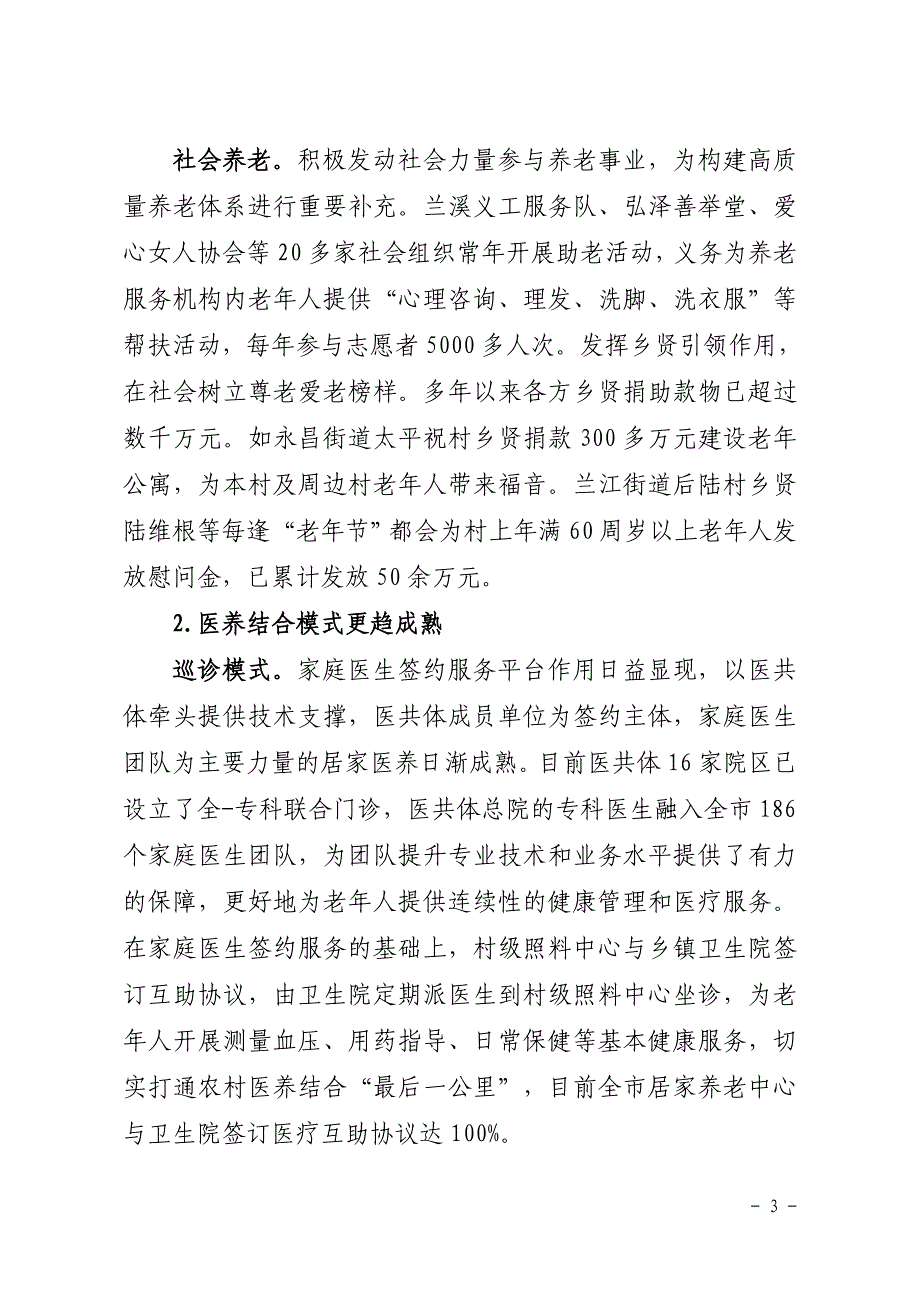 社会养老。积极发动社会力量参与养老事业，为构建高质
量养老体系进行重要补充。兰溪义工服务队、弘泽善举堂、爱
心女人协会等 20 多家社会组织常年开展助老活动，义务为养老
服务机构内老年人提供“心理咨询、理发、洗脚、洗衣服”等
帮扶活动，每年参与志愿者 5000 多人次。发挥乡贤引领作用，
在社会树立尊老爱老榜样。多年以来各方乡贤捐助款物已超过
数千万元。如永昌街道太平祝村乡贤捐款 300 多万元建设老年
公寓，为本村及周边村老年人带来福音。兰江街道后陆村乡贤
陆维根等每逢“老年节”都会为村上年满 60 周岁以上老年人发
放慰问金，已累计发放 50 余万元。
2.医养结合模式更趋成熟
巡诊模式。家庭医生签约服务平台作用日益显现，以医共
体牵头提供技术支撑，医共体成员单位为签约主体，家庭医生
团队为主要力量的居家医养日渐成熟。目前医共体 16 家院区已
设立了全-专科联合门诊，医共体总院的专科医生融入全市 186
个家庭医生团队，为团队提升专业技术和业务水平提供了有力
的保障，更好地为老年人提供连续性的健康管理和医疗服务。
在家庭医生签约服务的基础上，村级照料中心与乡镇卫生院签
订互助协议，由卫生院定期派医生到村级照料中心坐诊，为老
年人开展测量血压、用药指导、日常保健等基本健康服务，切
实打通农村医养结合“最后一公里”，目前全市居家养老中心
与卫生院签订医疗互助协议达 100%。
- 3 -